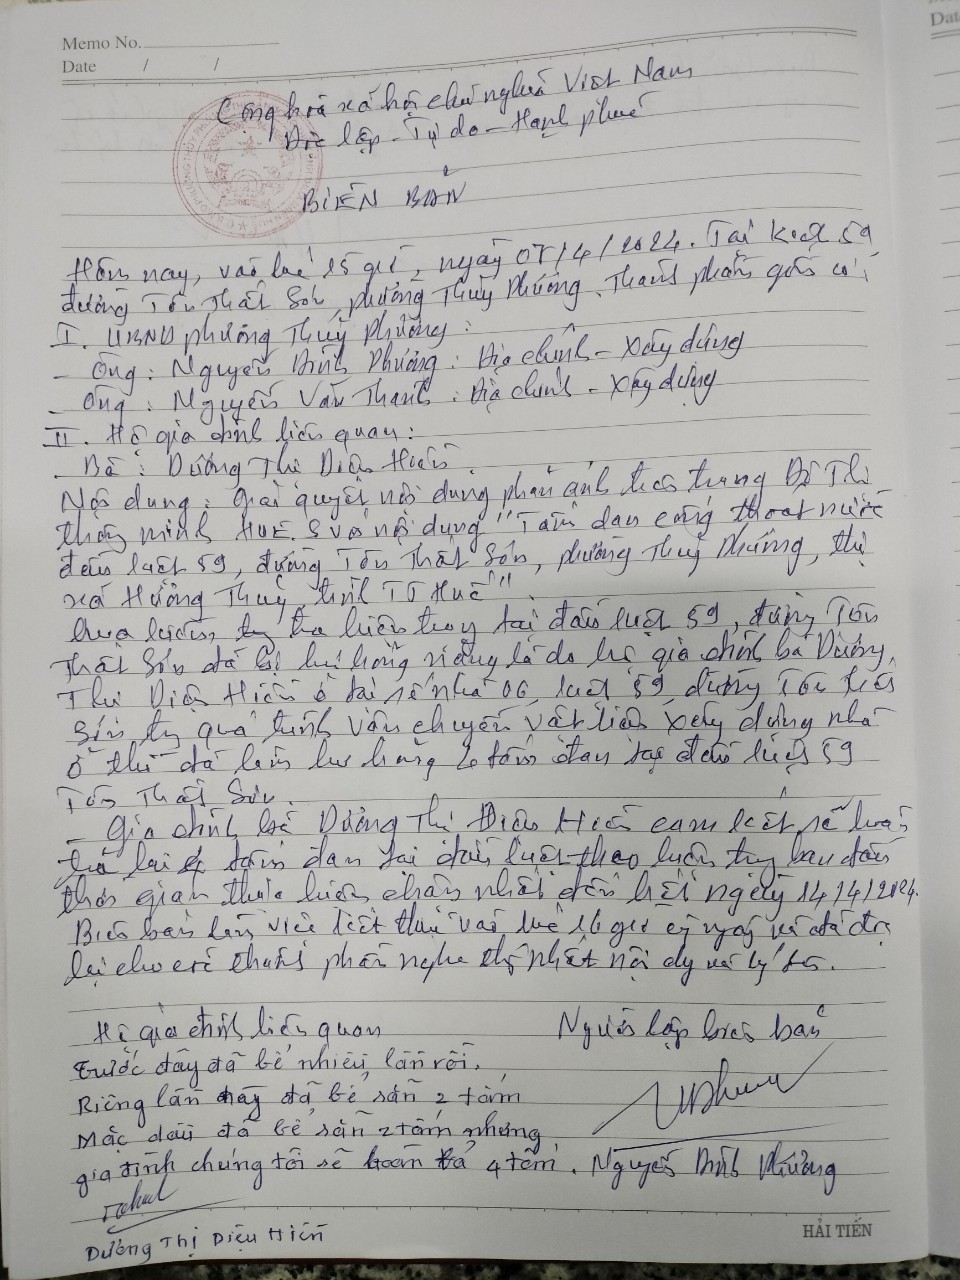 Memo No.
Date / /
Cộng hoà xã hội chủ nghĩa Việt Nam
Độc lập - Tự do - Hạnh phúc
BIÊN BẢN
Hôm nay, vào lúc 15 giờ, ngày 07/4/2024. Tại kiệt 59
đường Tôn Thất Sơn, phường Thuỷ Phương. Thành phần gồm có:
I. UBND phường Thuỷ Phương:
- Ông: Nguyễn Đình Phương: Địa chính - Xây dựng
- Ông: Nguyễn Văn Thanh: Địa chính - Xây dựng
II. Hộ gia đình liên quan:
- Bà: Dương Thị Diệu Hiền.
Nội dung: Giải quyết nội dung phản ánh trên trang Đô Thị
thông minh HUE.S với nội dung "Tấm đan cống thoát nước
đầu kiệt 59, đường Tôn Thất Sơn, phường Thuỷ Phương, thị
xã Hương Thuỷ, tỉnh TT Huế"
tại đầu kiệt 59, đường Tôn
Thất Sơn đã bị hư hỏng nặng là do hộ gia đình bà Dương
Thị Diệu Hiền ở tại số nhà 06, kiệt 59 đường Tôn Thất
Sơn quá trình vận chuyển vật liệu xây dựng nhà
ở thì đã làm hư hỏng 4 tấm đan tại đầu kiệt 59
Tôn Thất Sơn.
- Gia đình bà Dương Thị Diệu Hiền cam kết sẽ hoàn
trả lại 4 tấm đan tại đầu kiệt theo hiện trạng ban đầu
thời gian thực hiện chậm nhất đến hết ngày 14/4/2024.
Biên bản làm việc kết thúc vào lúc 16 giờ cùng ngày và đã đọc
lại cho các thành phần nghe thống nhất nội dung và ký tên.
Hộ gia đình liên quan
Người lập biên bản
Trước đây đã bể nhiều lần rồi.
Riêng lần này đã bể sẵn 2 tấm
Mặc dầu đã bể sẵn 2 tấm nhưng
gia đình chúng tôi sẽ hoàn trả 4 tấm.
Nguyễn Đình Phương
Dương Thị Diệu Hiền
HẢI TIẾN